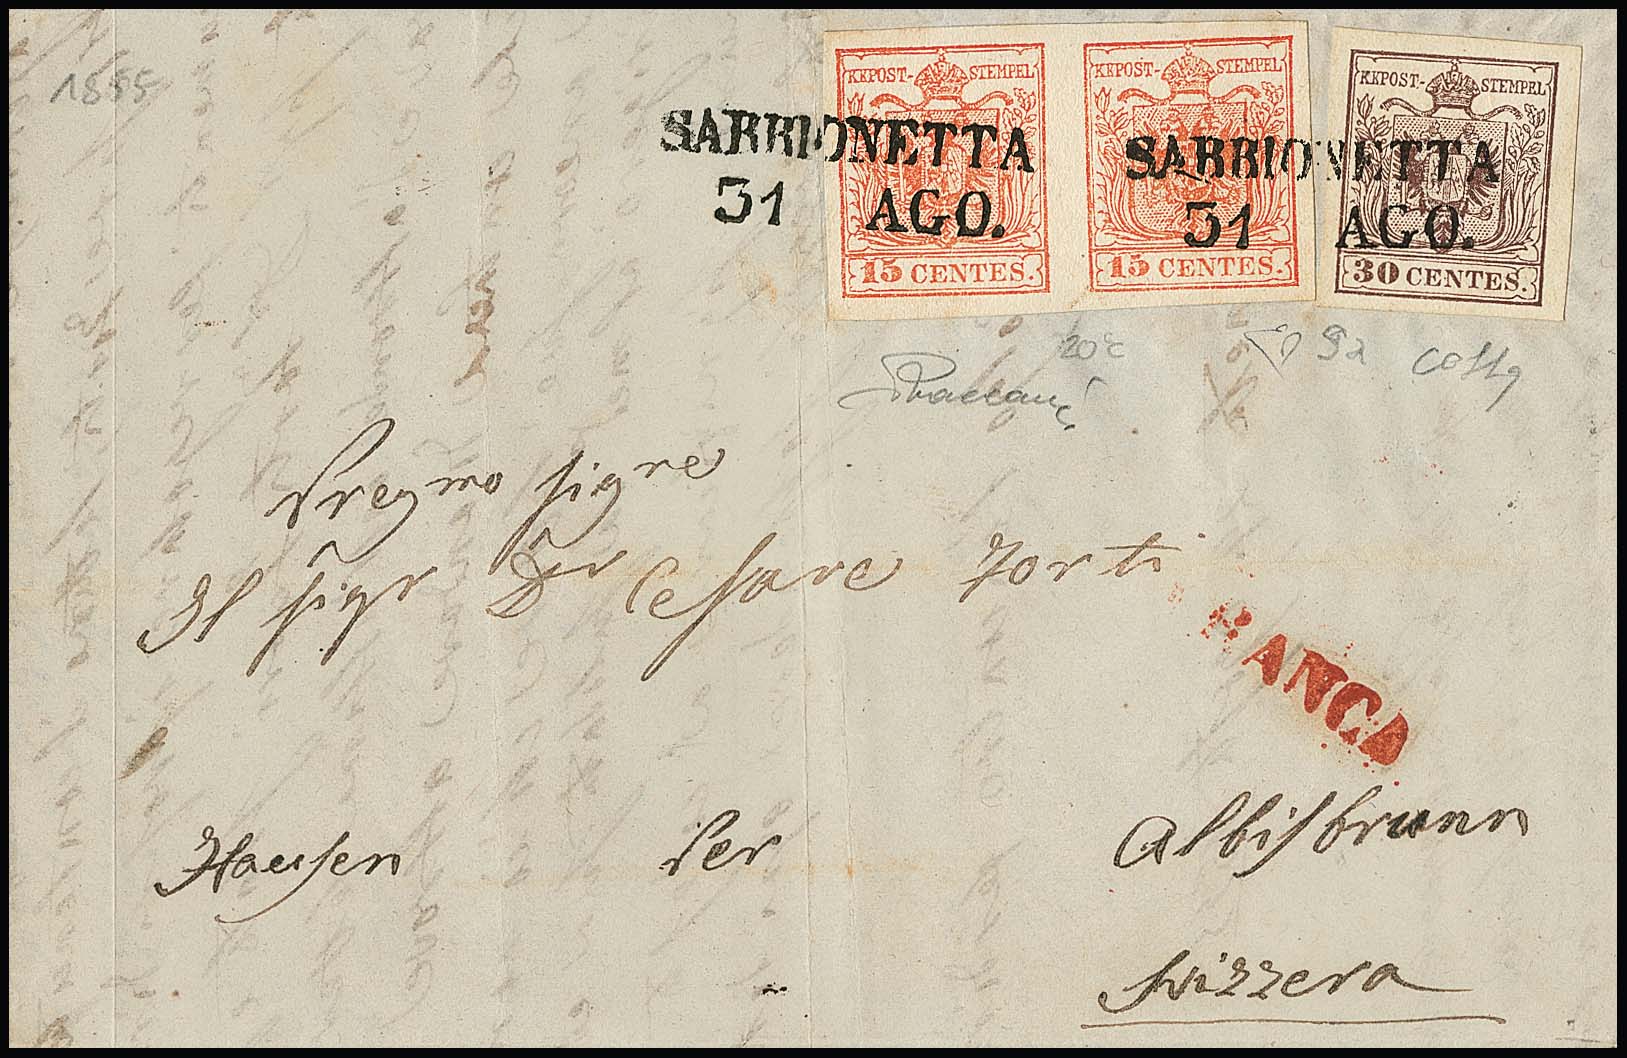 1855
KKPOST-STEMPEL
KKPOST-STEMPEL
KKPOST-STEMPEL
SABBIONETTA
31 AGO.
SABBIONETTA
31 AGO.
15 CENTES.
15 CENTES.
30 CENTES.
20c
9a Costa
Pregmo sigre
Il sigr Dr Cesare Forti
RANCA
Hausen Per Albisbrunn
Svizzera